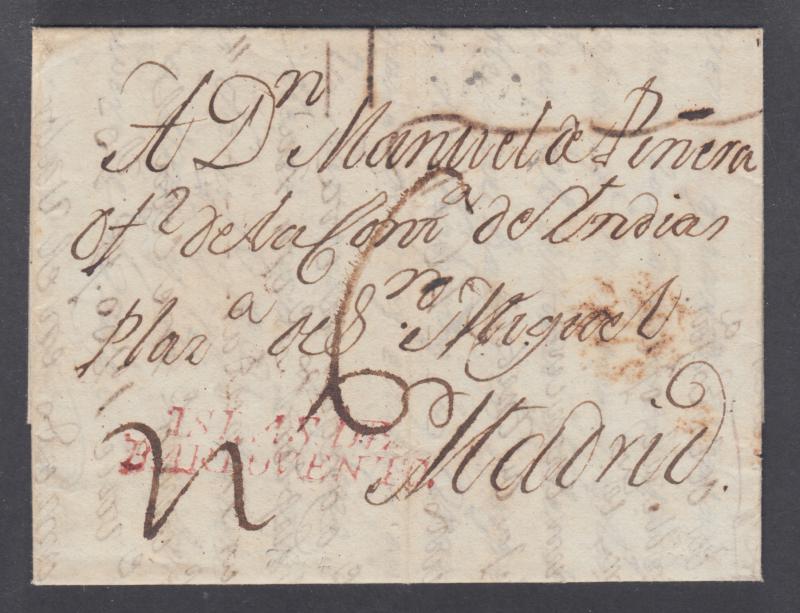 A Dⁿ Manuel de Piñera
Ofˡ de la Contᵃ de Indias
Plazᵃ de Sⁿ Miguel
6
ISLAS DE
BARLOVENTO.
Madrid.